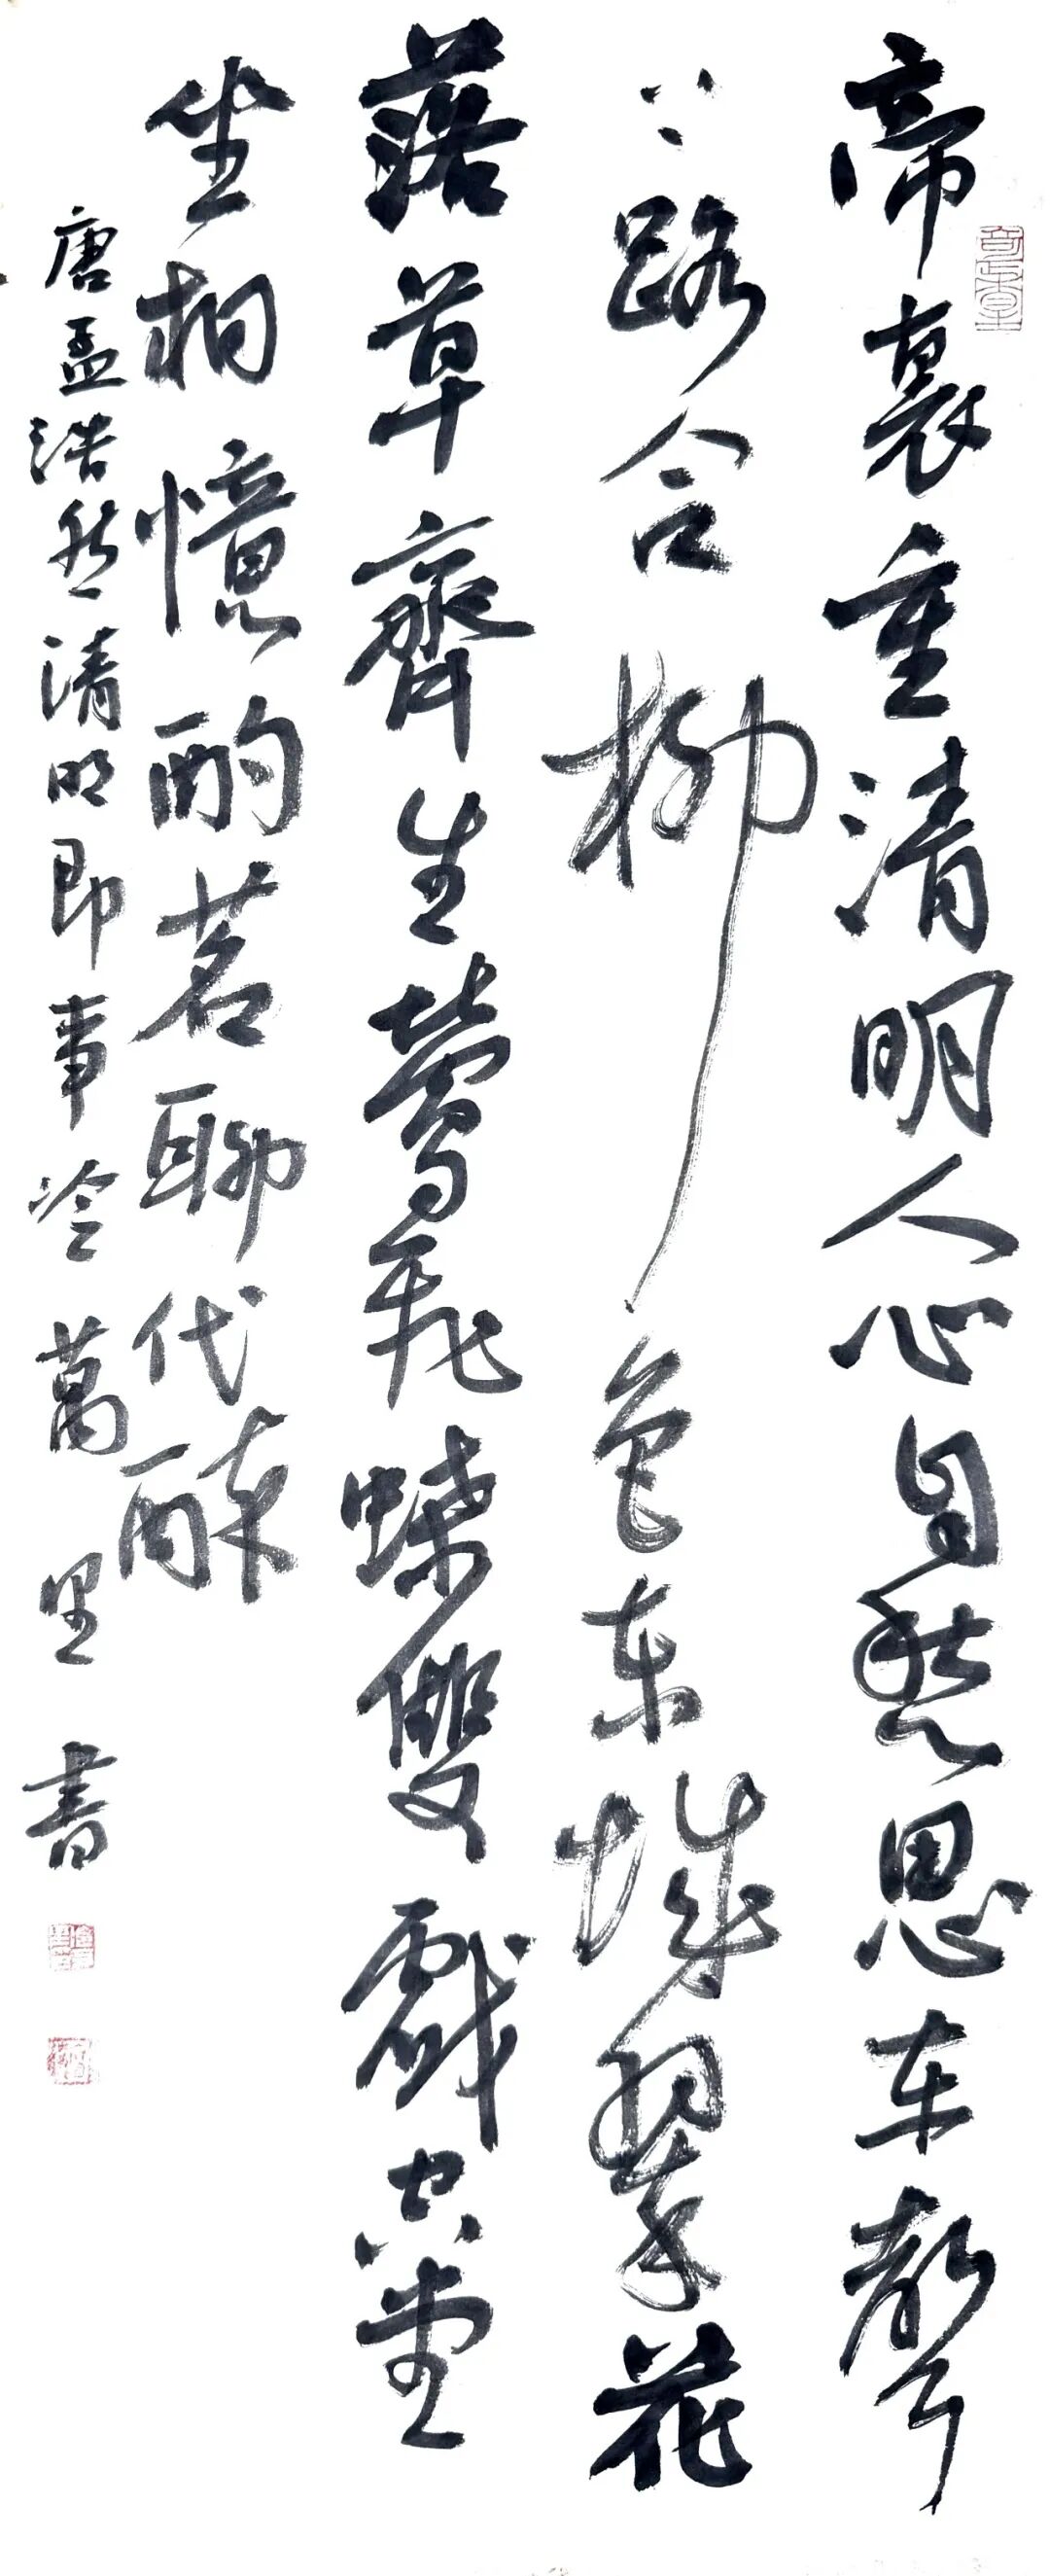 帝裏重清明人心自愁思车聲
上路合柳色东城翠花
落草齊生鶯飛蝶雙戲空堂
坐相憶酌茗聊代醉
唐孟浩然清明即事冷萬里書